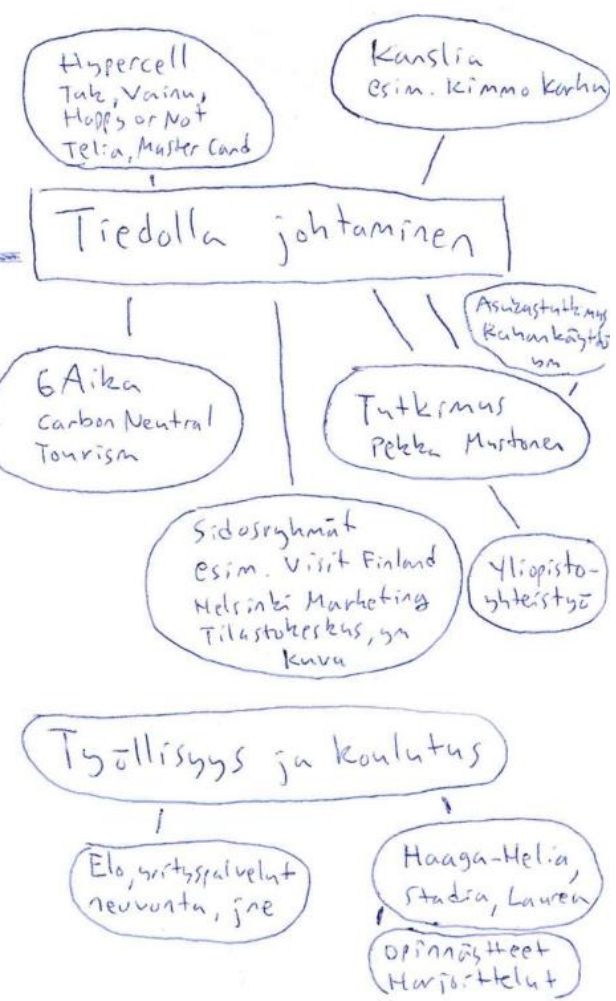 Hypercell
Tak, Vainu,
Happy or Not
Telia, Master Card
Kanslia
esim. Kimmo Karhu
Tiedolla johtaminen
Asukastutkimus
Rahankäyttö
ym
6Aika
Carbon Neutral
Tourism
Tutkimus
Pekka Mustonen
Sidosryhmät
esim. Visit Finland
Helsinki Marketing
Tilastokeskus, ym
Kuva
Yliopisto-
yhteistyö
Työllisyys ja koulutus
Elo, yrityspalvelut
neuvonta, jne
Haaga-Helia,
Stadia, Laurea
opinnäytteet
Harjoittelut